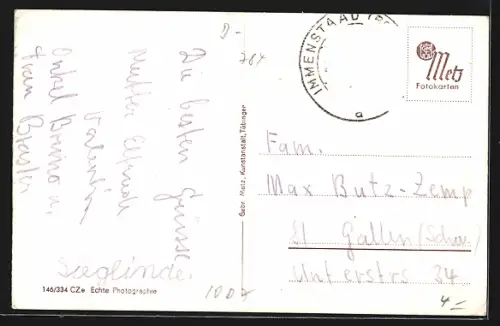 D-
784
IMMENSTAAD
a
Metz
Fotokarten
Die besten Grüsse
Mutter Elfriede
Valentin
Onkel Bruno u.
Frau
Sieglinde.
Gebr. Metz, Kunstanstalt, Tübingen
Fam.
Max Butz-Zemp
St Gallen (Schw.)
Unterstrs 34
146/334 CZe Echte Photographie
1007
4-